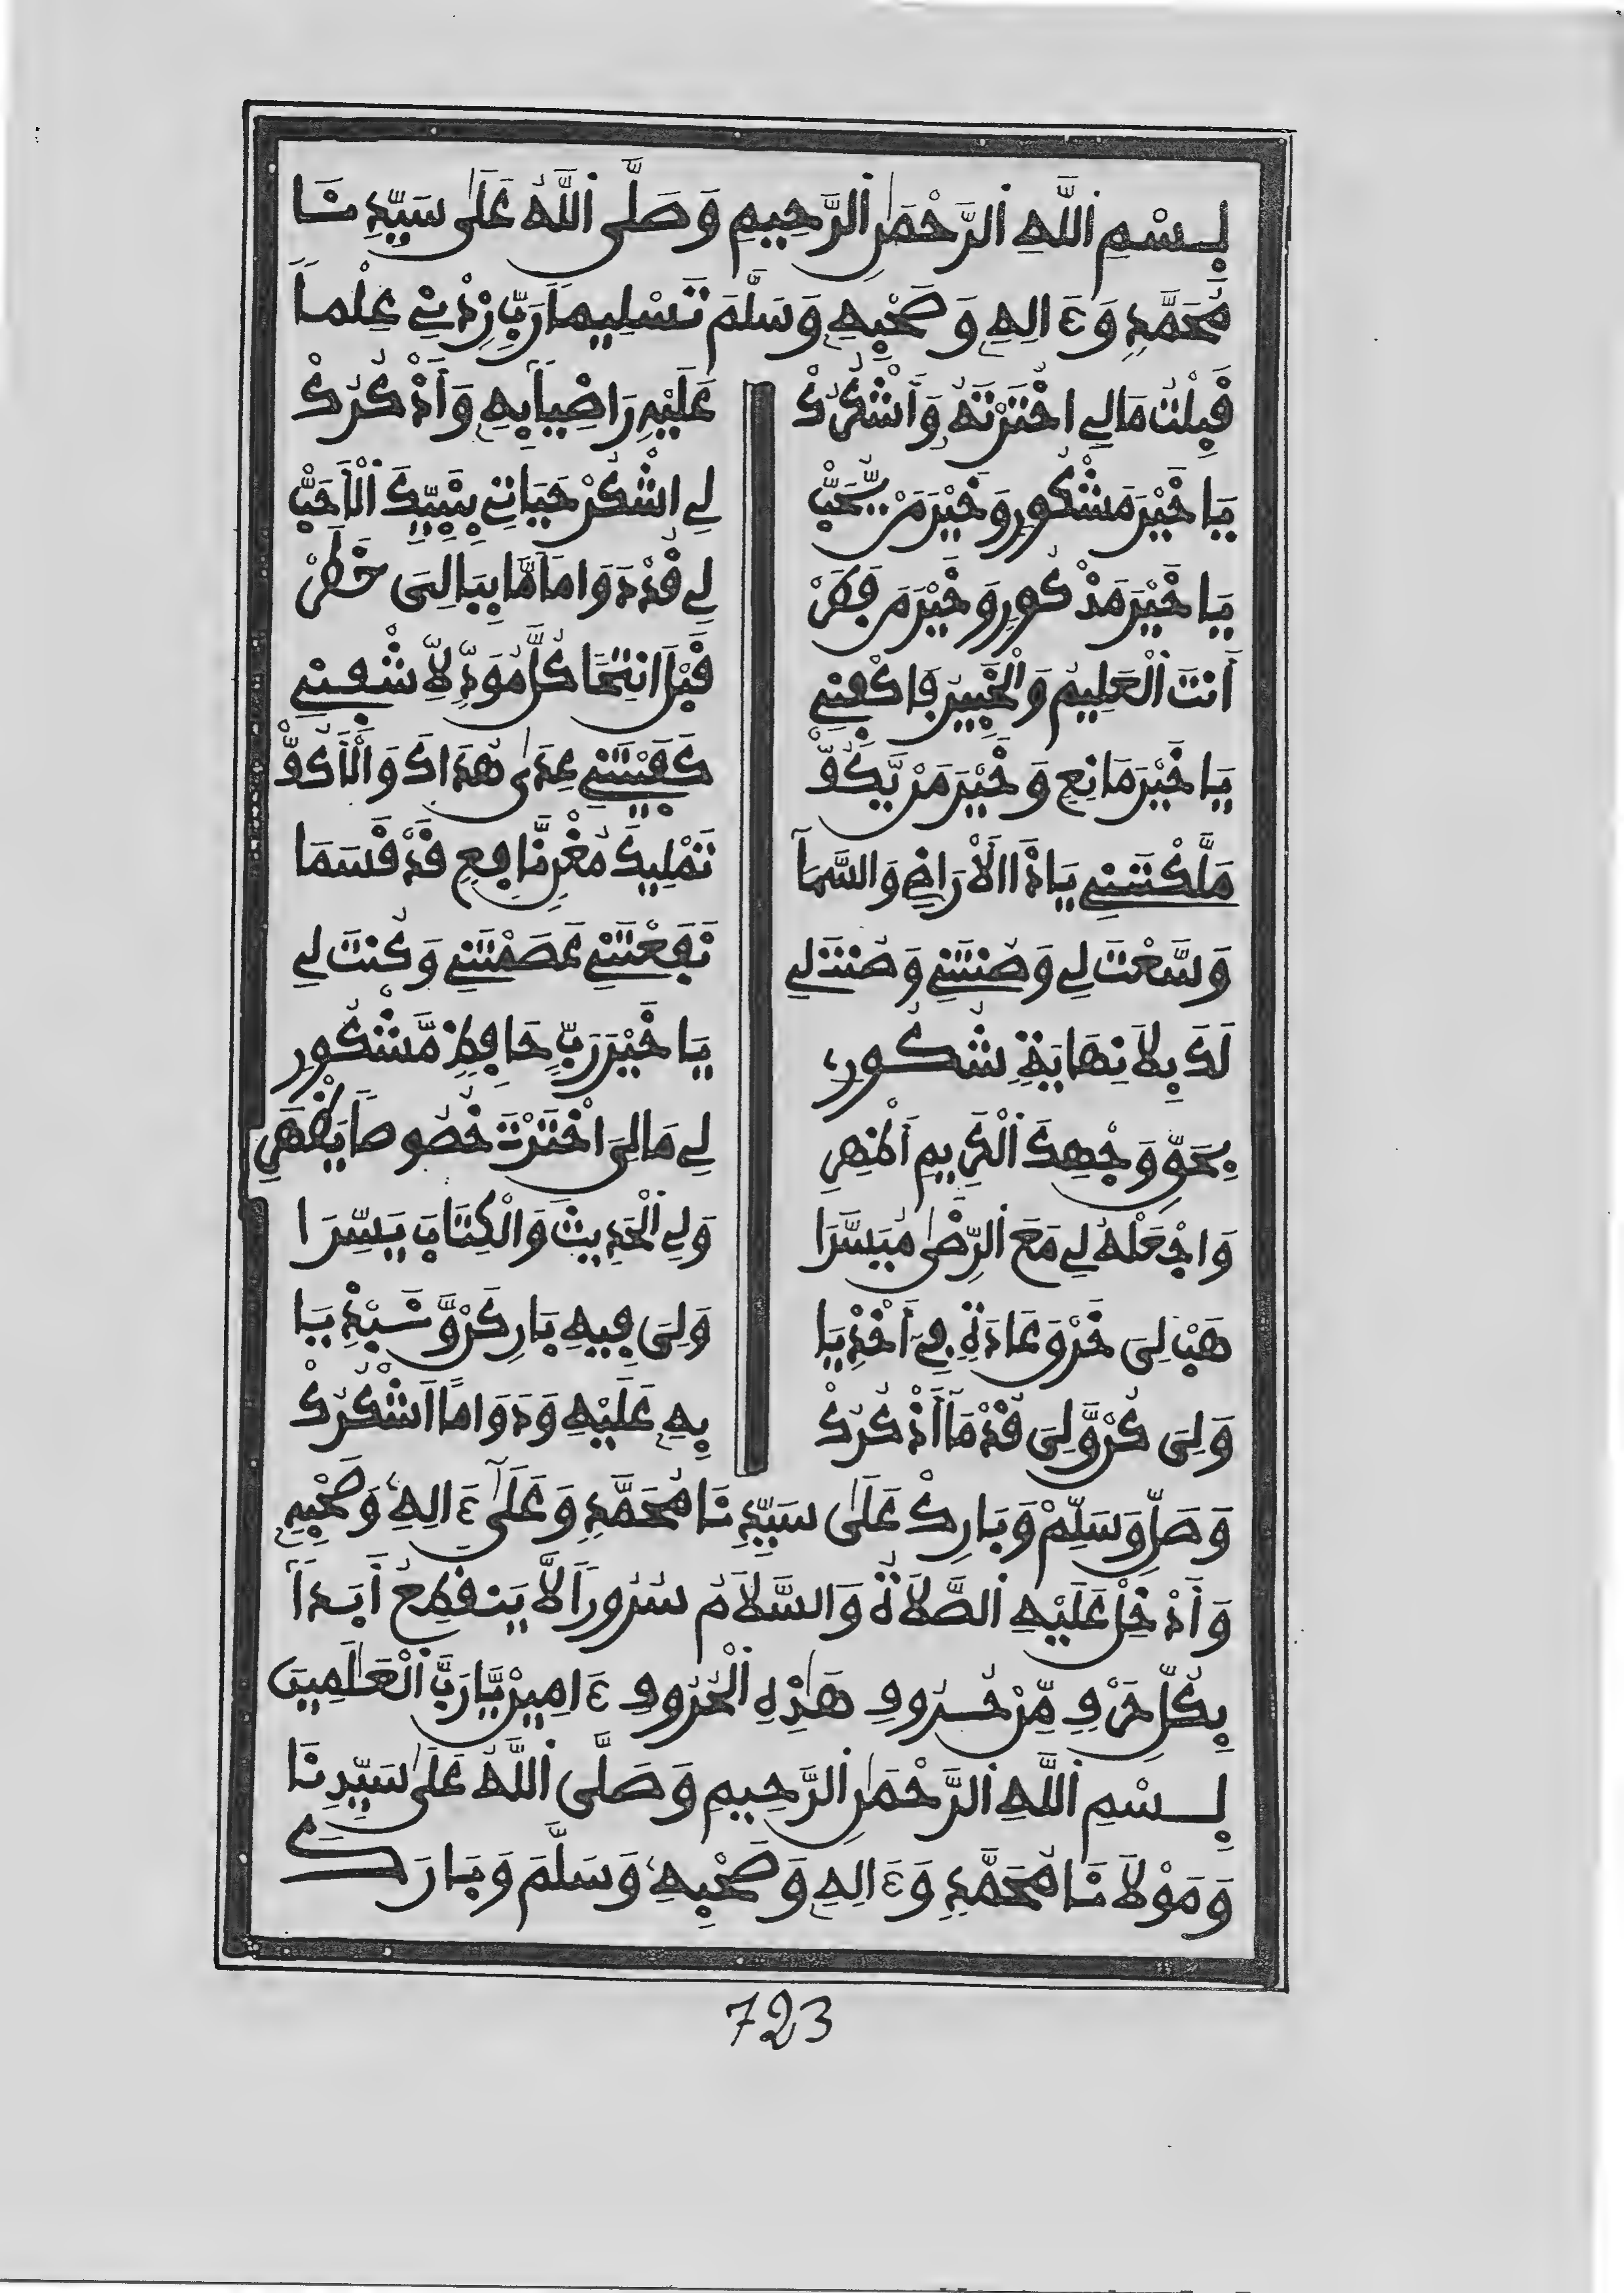 بِسْمِ اللَّهِ الرَّحْمَٰنِ الرَّحِيمِ وَصَلَّى اللَّهُ عَلَىٰ سَيِّدِنَا
مُحَمَّدٍ وَءَالِهِ وَصَحْبِهِ وَسَلَّمَ تَسْلِيماً رَبِّ زِدْنِي عِلْماً
قَبِلْتُ مَا لِي اخْتَرْتَهُ وَأَشْكُرُكْ عَلَيْهِ رَاضِياً بِهِ وَأَذْكُرُكْ
يَا خَيْرَ مَشْكُورٍ وَخَيْرَ مَنْ يُّحَبّْ لِي اشْكُرْ حَيَاتِي بِنَبِيِّكَ الْأَحَبّْ
يَا خَيْرَ مَذْكُورٍ وَخَيْرَ مَن فَطَرْ لِي قُدْ دَوَاماً مَّا بِبَالِيَ خَطَرْ
أَنتَ الْعَلِيمُ وَالْخَبِيرُ فَاكْفِنِي قَبْلَ انْتِحَا كُلَّ مُوَدٍّ لَّا شَفِنِي
يَا خَيْرَ مَانِعٍ وَخَيْرَ مَنْ يَّكُفّْ كَفَيْتَنِي عِدَىٰ هَذَاكَ وَالْأَكُفّْ
مَلَّكْتَنِي يَا ذَا الْأَرَاضِي وَالسَّمَا تَمْلِيكَ مُغْنٍ نَّافِعٍ قَدْ قَسَمَا
وَسَّعْتَ لِي وَصُنتَنِي وَصُنتَ لِي نَفَعْتَنِي عَصَمْتَنِي وَكُنتَ لِي
لَكَ بِلَا نِهَايَةٍ شُكُورِ، يَا خَيْرَ رَبٍّ حَافِظٍ مَّشْكُورِ
بِحَقِّ وَجْهِكَ الْكَرِيمِ لِي مَا لِيَ اخْتَرْتَ خُصُوصاً
وَاجْعَلْهُ لِي مَعَ الرِّضَىٰ مُيَسَّرَا وَلِي الْحَدِيثَ وَالْكِتَابَ يَسِّرَا
هَبْ لِيَ خَرْقَ عَادَةٍ فِي أَخْذِيَا وَلِيَ فِيهِ بَارِكَنْ وَّ
وَلِيَ كُنْ وَّلِيَ قُدْ مَا أَذْكُرُكْ بِهِ عَلَيْهِ وَدَوَاماً أَشْكُرُكْ
وَصَلِّ وَسَلِّمْ وَبَارِكْ عَلَىٰ سَيِّدِنَا مُحَمَّدٍ وَعَلَىٰ ءَالِهِ وَصَحْبِهِ
وَأَدْخِلْ عَلَيْهِ الصَّلَاةُ وَالسَّلَامُ سُرُوراً لَّا يَنقَطِعُ أَبَداً
بِكُلِّ حَرْفٍ مِّنْ حُرُوفِ هَٰذِهِ الْحُرُوفِ ءَامِينْ يَّا رَبَّ الْعَٰلَمِينَ
بِسْمِ اللَّهِ الرَّحْمَٰنِ الرَّحِيمِ وَصَلَّى اللَّهُ عَلَىٰ سَيِّدِنَا
وَمَوْلَانَا مُحَمَّدٍ وَءَالِهِ وَصَحْبِهِ وَسَلَّمَ وَبَارَكَ
723